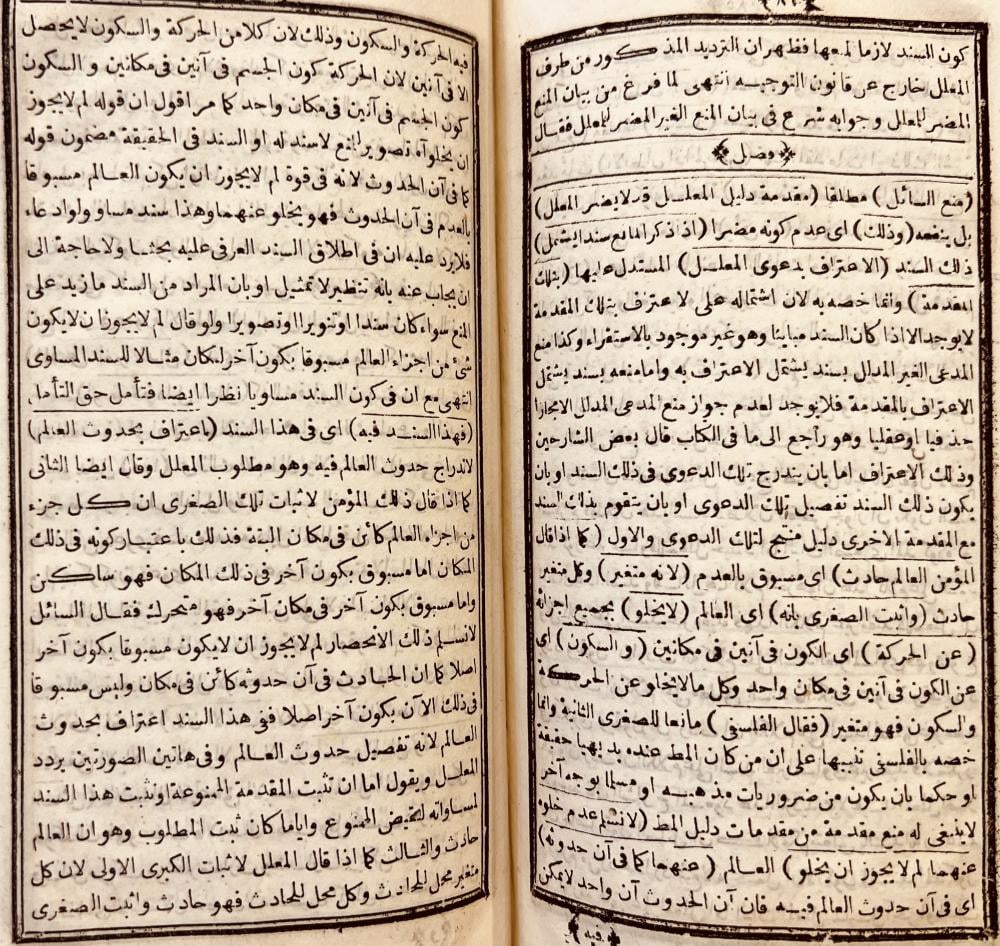 كون السند لازما لمنعها فظهر ان الترديد المذكور من طرف
المعلل خارج عن قانون التوجيه انتهى لما فرغ من بيان المنع
المضر للمعلل وجوابه شرع في بيان المنع الغير المضر للمعلل فقال
﴿ فصل ﴾
(منع السائل) مطلقا (مقدمة دليل المعلل قد لا يضر المعلل)
بل ينفعه (وذلك) اى عدم كونه مضرا (اذا ذكر المانع سندا يشتمل)
ذلك السند (الاعتراف بدعوى المعلل) المستدل عليها (بتلك
المقدمة) وانما خصه به لان اشتماله على لاعتراف بتلك المقدمة
لا يوجد الا اذا كان السند مباينا وهو غير موجود بالاستقراء وكذا منع
المدعى الغير المدلل بسند يشتمل الاعتراف به واما منعه بسند يشتمل
الاعتراف بالمقدمة فلا يوجد لعدم جواز منع المدعى المدلل الا مجازا
حذفيا او عقليا وهو راجع الى ما فى الكتاب قال بعض الشارحين
وذلك الاعتراف اما بان يندرج تلك الدعوى فى ذلك السند او بان
يكون ذلك السند تفصيل تلك الدعوى او بان يتقوم بذلك السند
مع المقدمة الاخرى دليل منتج لتلك الدعوى والاول (كما اذا قال
المؤمن العالم حادث) اى مسبوق بالعدم (لانه متغير) وكل متغير
حادث (واثبت الصغرى بانه) اى العالم (لا يخلو) بجميع اجزائه
(عن الحركة) اى الكون فى آنين فى مكانين (والسكون) اى
عن الكون فى آنين فى مكان واحد وكل ما لا يخلو عن الحركة
والسكون فهو متغير (فقال الفلسفى) مانعا للصغرى الثانية وانما
خصه بالفلسفى تنبيها على ان من كان المط عنده بديهيا حقيقة
او حكما بان يكون من ضروريات مذهبه او مسلما بوجه آخر
لا ينبغى له منع مقدمة من مقدمات دليل المط (لانسلم عدم خلوه
عنهما لم لا يجوز ان يخلو) العالم (عنهما كما فى آن حدوثه)
اى فى آن حدوث العالم فيه فان آن الحدوث آن واحد لا يمكن
﴿ فيه ﴾
فيه الحركة والسكون وذلك لان كلا من الحركة والسكون لا يحصل
الا فى آنين لان الحركة كون الجسم فى آنين فى مكانين والسكون
كون الجسم فى آنين فى مكان واحد كما مر اقول ان قوله لم لا يجوز
ان يخلو آه تصوير للمنع لا سند له او السند فى الحقيقة مضمون قوله
كما فى آن الحدوث لانه فى قوة لم لا يجوز ان يكون العالم مسبوقا
بالعدم فى آن الحدوث فهو يخلو عنهما وهذا سند مساو ولو ادعاء
فلا يرد عليه ان فى اطلاق السند العرفى عليه بحثا ولا حاجة الى
ان يجاب عنه بانه تنظير لا تمثيل او بان المراد من السند ما زيد على
المنع سواء كان سندا او تنويرا او تصويرا ولو قال لم لا يجوز ان لا يكون
شئ من اجزاء العالم مسبوقا بكون آخر لكان مثالا للسند المساوى
انتهى مع ان فى كون السند مساويا نظرا ايضا فتأمل حق التأمل
(فهذا السند فيه) اى فى هذا السند (اعتراف بحدوث العالم)
لاندراج حدوث العالم فيه وهو مطلوب المعلل وقال ايضا الثانى
كما اذا قال ذلك المؤمن لاثبات تلك الصغرى ان كل جزء
من اجزاء العالم كائن فى مكان البتة فذلك باعتبار كونه فى ذلك
المكان اما مسبوق بكون آخر فى ذلك المكان فهو ساكن
واما مسبوق بكون آخر فى مكان آخر فهو متحرك فقال السائل
لانسلم ذلك الانحصار لم لا يجوز ان لا يكون مسبوقا بكون آخر
اصلا كما ان الحادث فى آن حدوثه كائن فى مكان وليس مسبوقا
فى ذلك الآن بكون آخر اصلا ففى هذا السند اعتراف بحدوث
العالم لانه تفصيل حدوث العالم وفى هاتين الصورتين يردد
المعلل ويقول اما ان تثبت المقدمة الممنوعة او تثبت هذا السند
لمساواته لنقيض الممنوع واياما كان ثبت المطلوب وهو ان العالم
حادث والثالث كما اذا قال المعلل لاثبات الكبرى الاولى لان كل
متغير محل للحادث وكل محل للحادث فهو حادث واثبت الصغرى